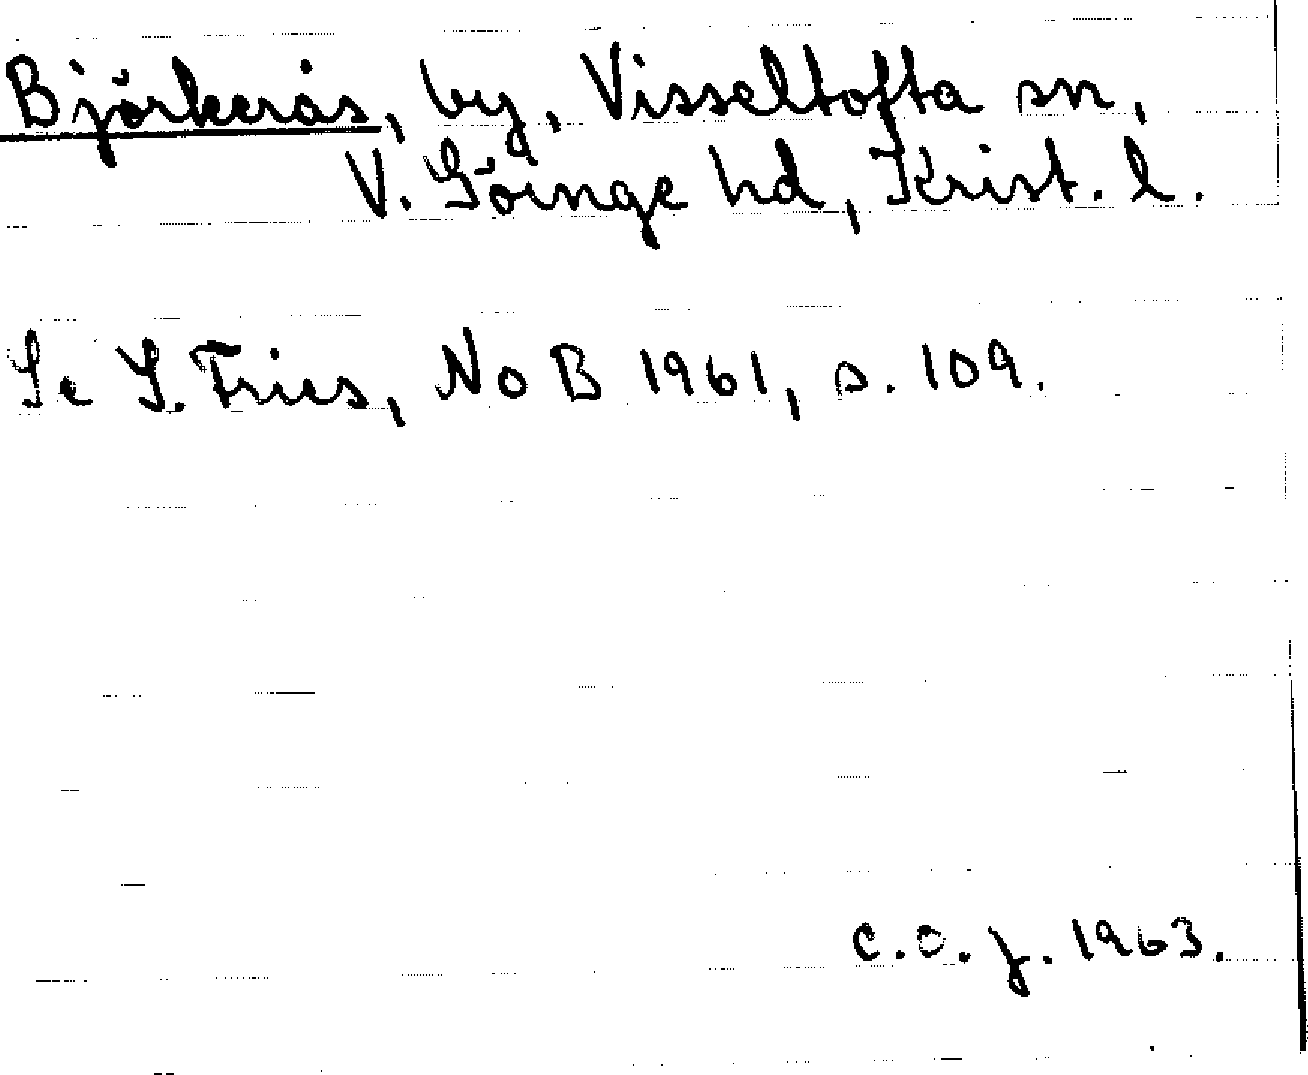 Björkerås, by, Visseltofta sn,
V. Göinge hd, Krist. l.
Se S. Fries, NoB 1961, s. 109.
C.O.J. 1963.